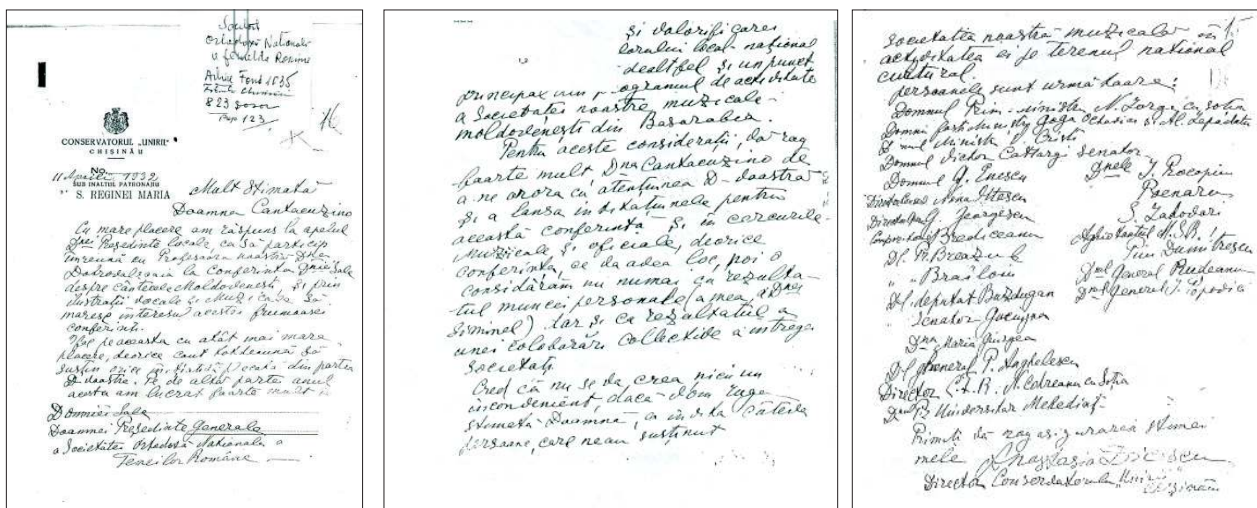 Societ.
Ortodoxă Națională
a femeilor Române
Arhive Fond 1835
823 dosar
Pap 123
76
CONSERVATORUL „UNIRII"
CHIȘINĂU
No.
11 Aprilie 1932
SUB INALTUL PATRONAJ
S. REGINEI MARIA
Mult Stimată
Doamna Cantacuzino
Cu mare placere am răspuns la apelul
Dnei Președinte locale, ca să particip
împreună cu Profesoara noastră Dna
la Conferința Dniei Sale
despre cântecele Moldovenești, și prin
ilustrații vocale și Muzicale să
maresc interesul acestei frumoase
conferinți.
Fac pe aceasta cu atât mai mare
placere, deorice caut totdeauna să
susțin orice inițiativă pecată din partea
D-voastre. Pe de altă parte anul
acesta am lucrat foarte mult la
Domniei Sale
Doamnei Președinte Generale
a Societatei Ortodoxă Nationala a
Femeilor Române
și valorificarea
locului local-național
dealtfel și un punct
principax programul de activitate
a Societatei noastre muzicale-
moldovenești din Basarabia.
Pentru aceste considerații, vă rog
foarte mult Dna Cantacuzino de
a ne onora cu atențiunea D-voastră
și a lansa invitațiunele pentru
această conferință și în cercurile
muzicale și oficiale, deorice
conferința, ce va avea loc, noi o
considărăm nu numai ca rezulta-
tul muncei personale (a mea, a Dnei
Siminel) dar și ca rezultatul a
unei colaborări collective a întregei
societati
Cred că nu se va crea niciun
inconvenient, dacă vom ruga
stimata Doamnă, a invita câteva
persoane, care neau susținut
societatea noastră muzicală în
activitatea ei pe terenul național
cultural.
persoanele sunt următoare:
Domnul Prim-ministru N. Iorga cu soția
Domnii foști Miniștri Goga Octavian și Al. Lapedatu
Dnul Ministru V. Cristi
Domnul Victor Cattargi senator
Domnul G. Enescu
Dnele I. Procopiu
Nona Otescu
Poenaru
G. Georgescu
S. Zadodari
Brediceanu
Aghiotantul M.S.R.
Dl. Breazul
Piu Dumitrescu
" Brailoiu
Dnul General Rudeanu
Dl. deputat Bazdugan
Dnul General I. Popovici
" Senator
Dna Maria Giurgea
Dl General P. Anghelescu
Director C.F.R. M. Codreanu cu Soția
Dnul Pr. Universitar Mehedinți
Primiți vă rog asigurarea stimei
mele Anastasia Dicescu
Director Conservatorului „Unirii"
Chișinău